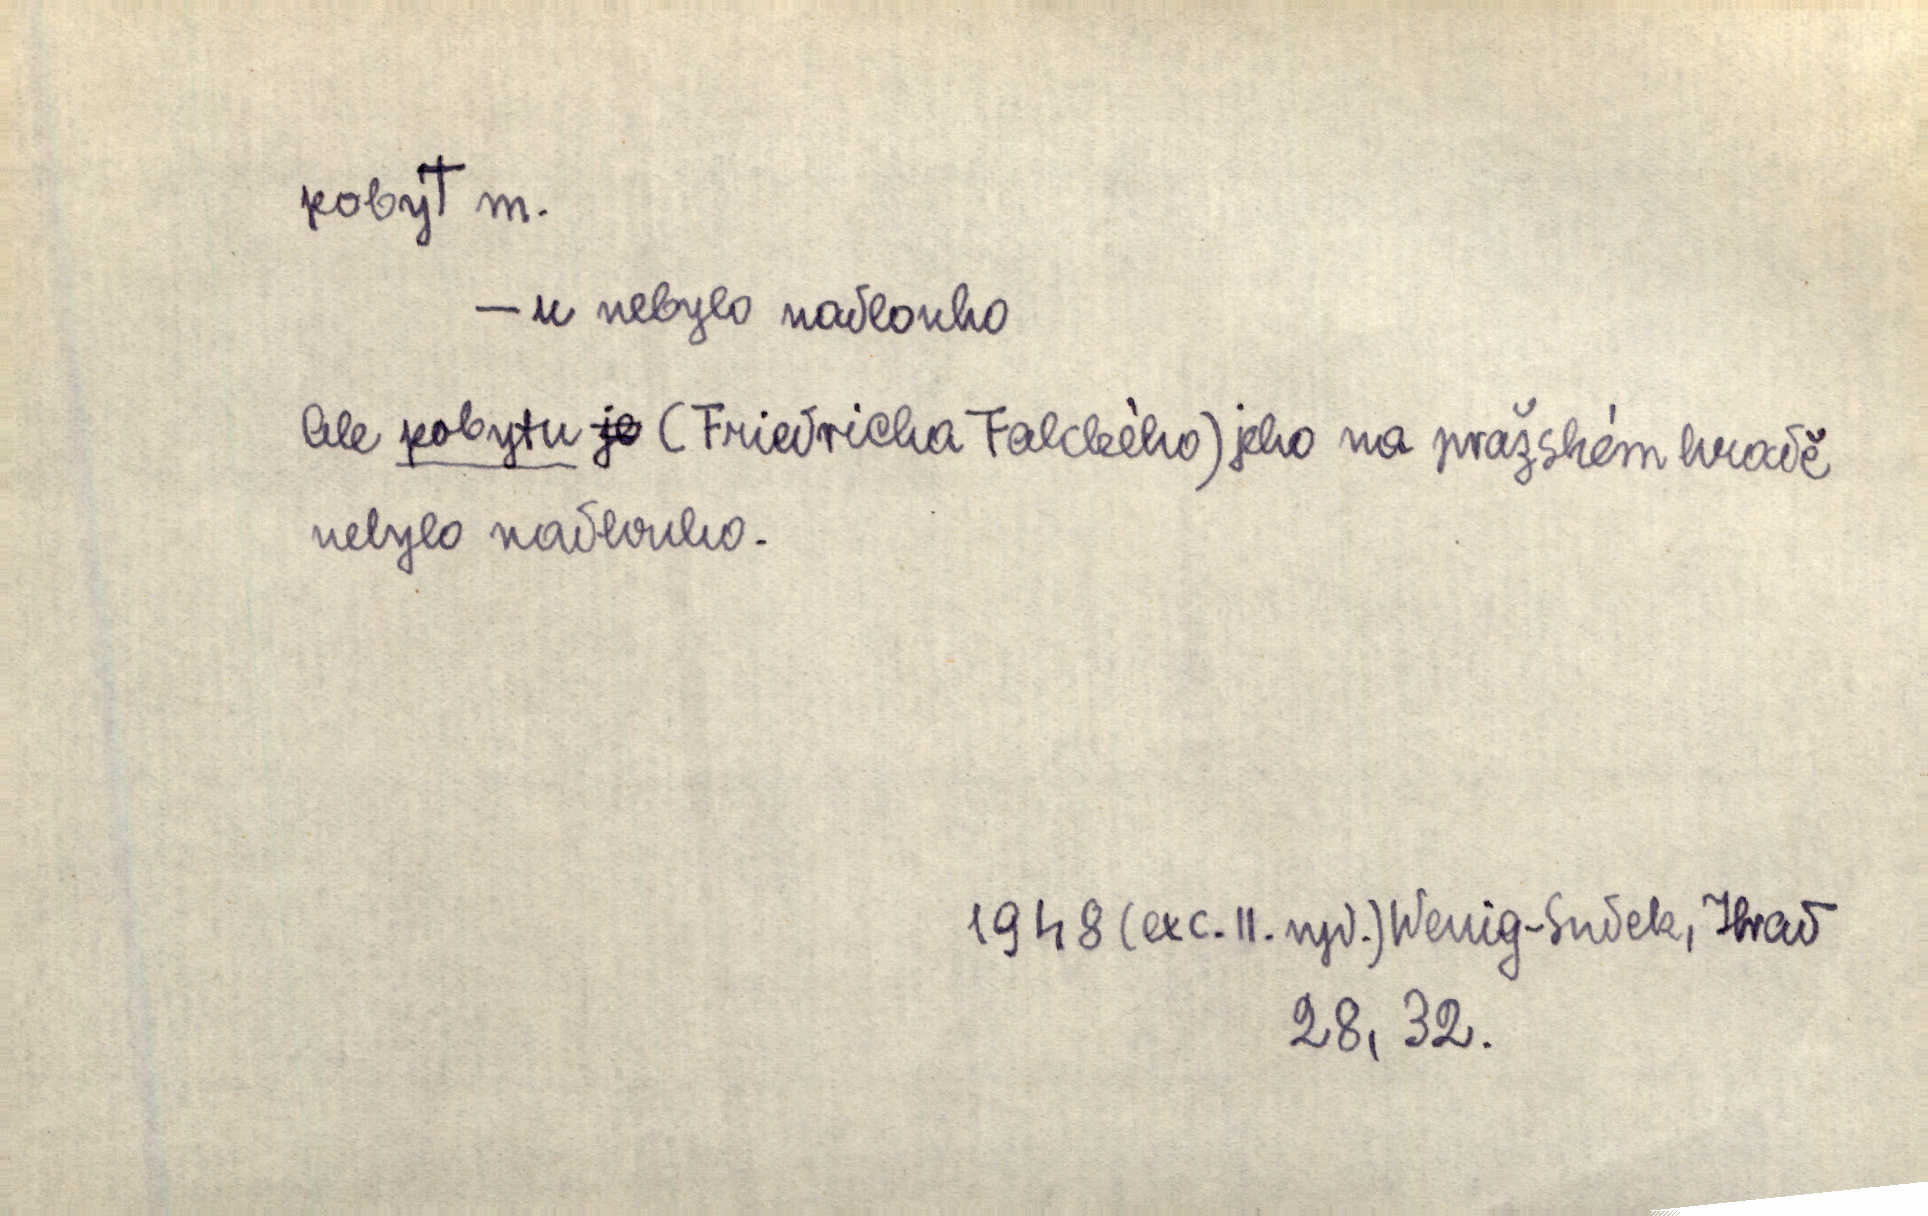 pobyt m.
—u nebylo nadlouho
Ale pobytu je (Friedricha Falckého) jeho na pražském hradě
nebylo nadlouho.
1948 (exc. II. vyd.) Wenig-Sudek, Hrad
28, 32.